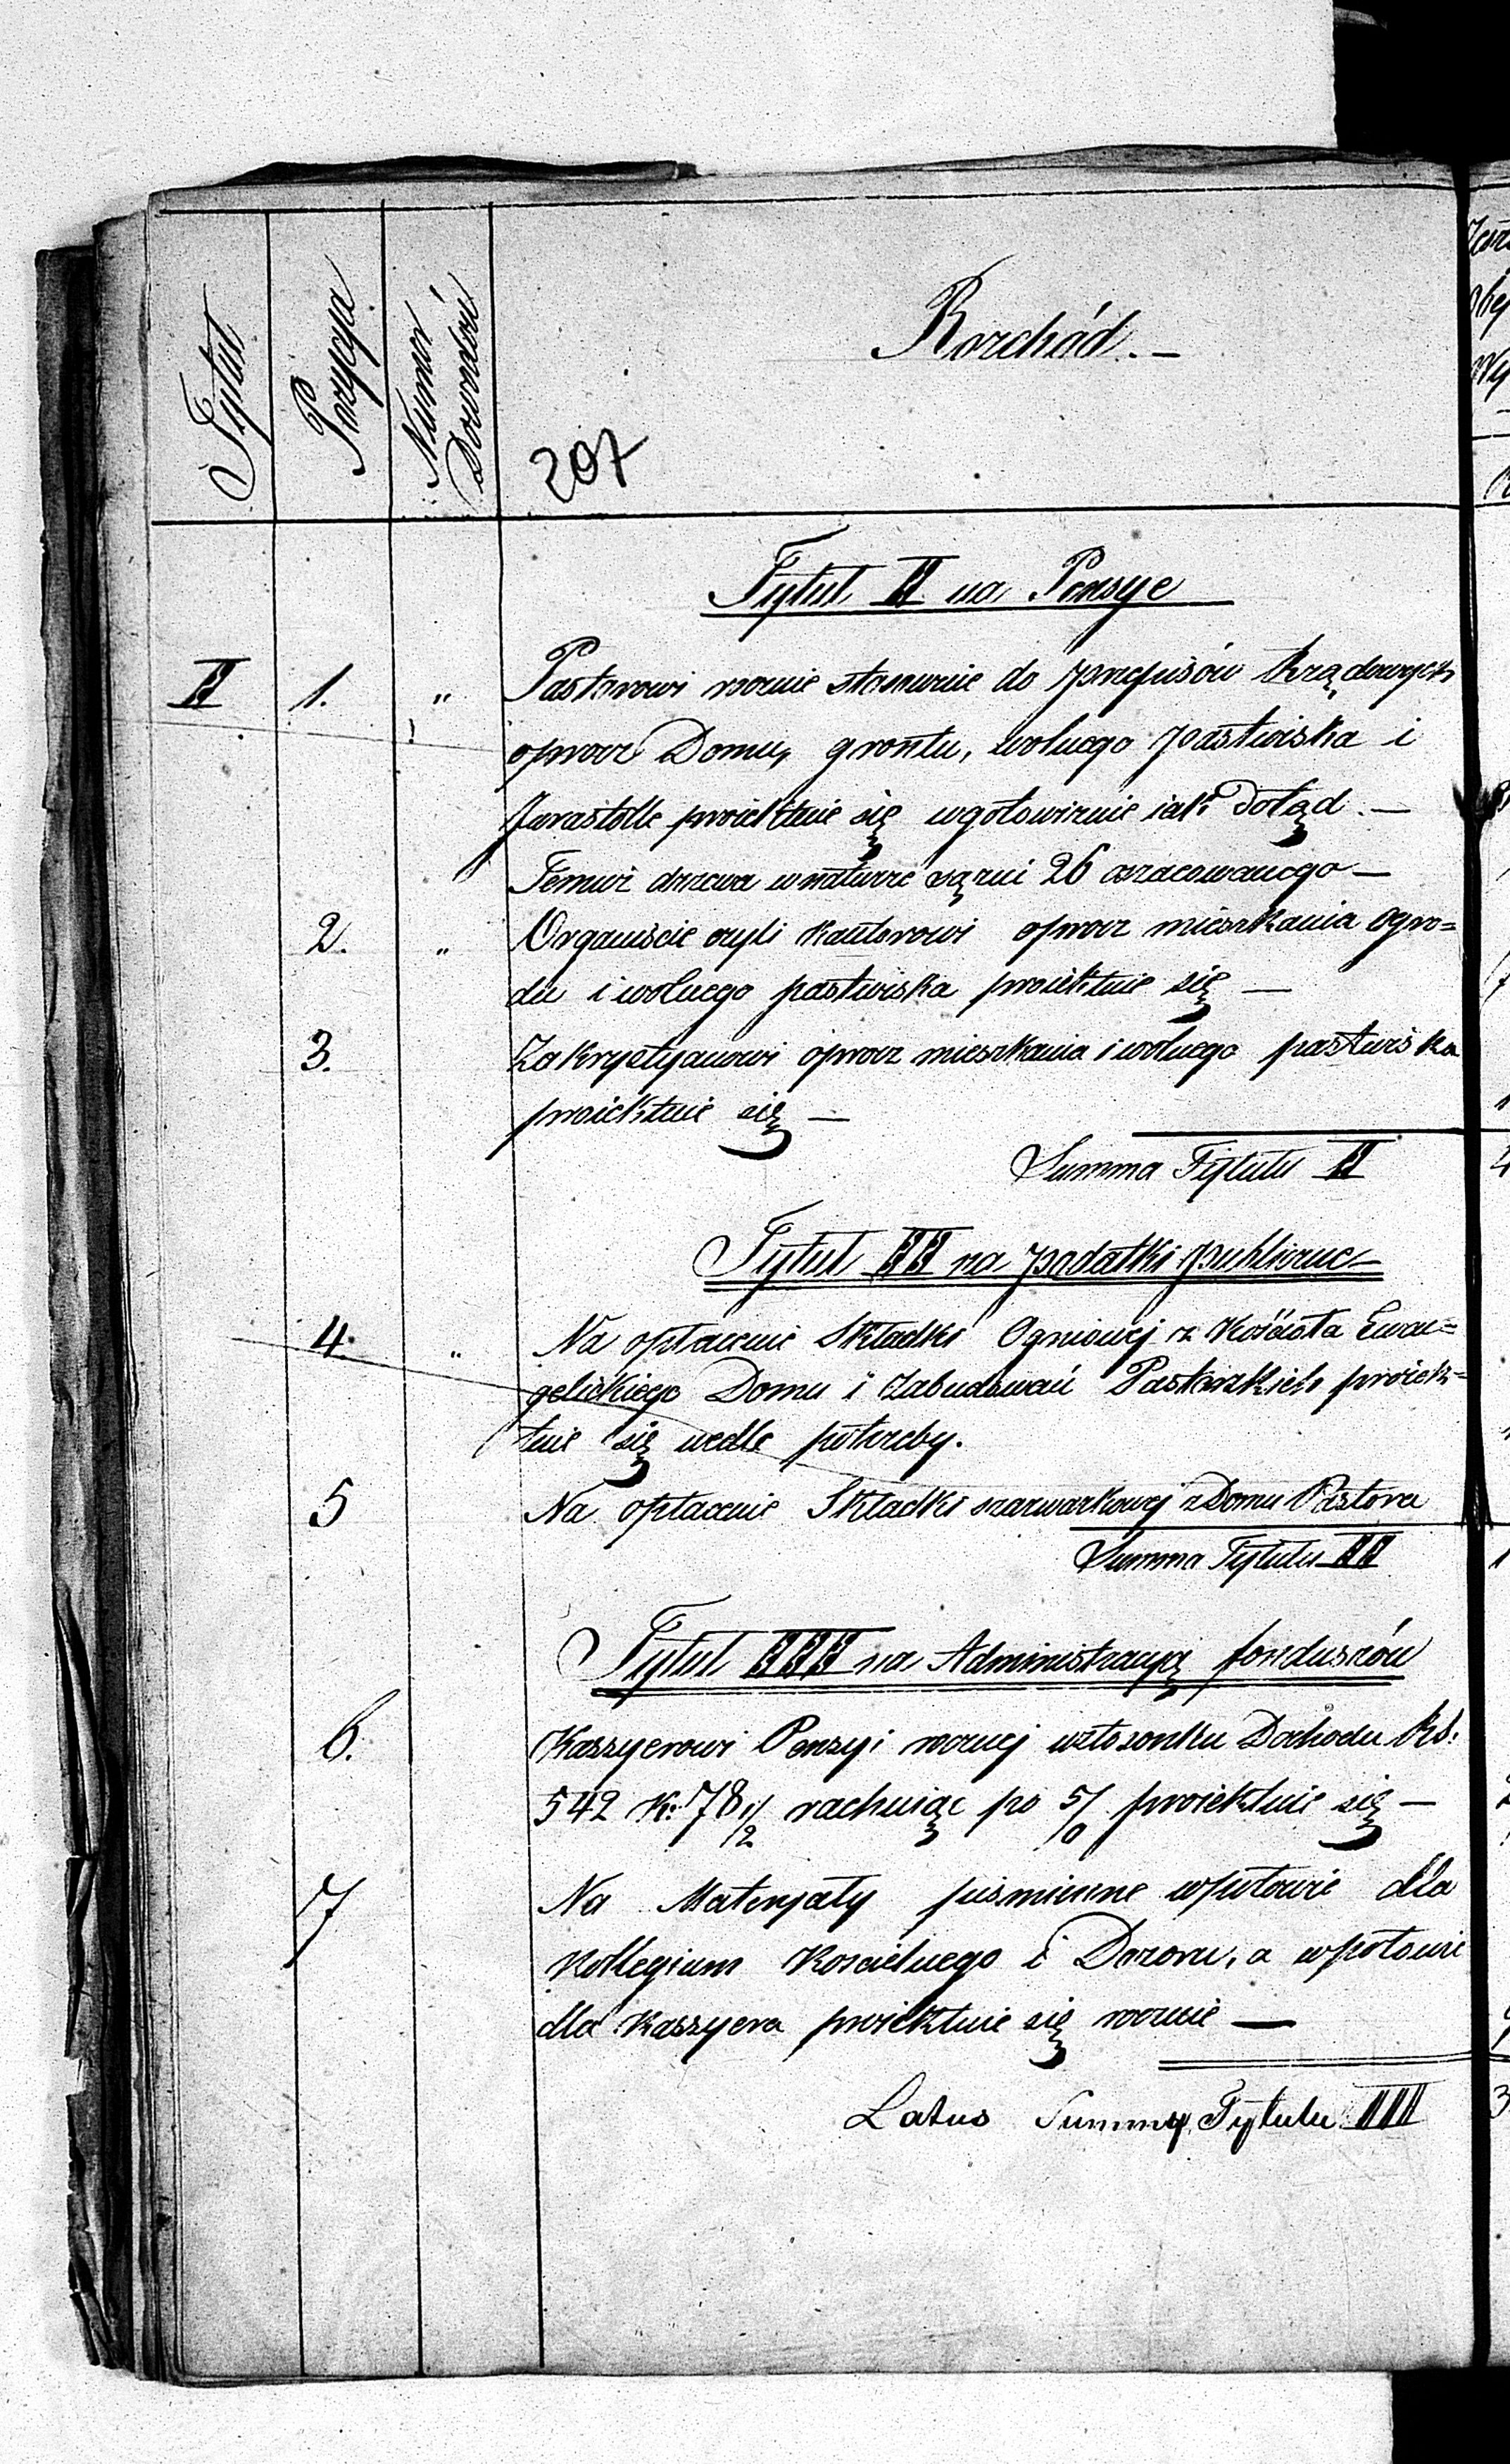 Tytuł
Pozycya
Numer
Dowodów
Rozchód. —
207
Tytuł I na Pensye
I 1. " Pastorowi rocznie stosownie do przepisów Rządowych
oprocz Domu, grontu, wolnego pastwiska i
proiektuie się wgotowiznie iak dotąd. —
Temuż drzewa wnaturze sążni 26 oszacowanego —
2. " Organiscie czyli Kantorowi oprocz mieszkania ogro=
du i wolnego pastwiska proiektuie się —
3. Zakrystyanowi oprocz mieszkania i wolnego pastwiska
proiektuie się —
Summa Tytułu I
Tytuł II na podatki publiczne —
4. " Na opłacenie Składki Ogniowej z Kościoła Ewan=
gelickiego Domu i Zabudowań Pastorskich proiek=
tuie się wedle potrzeby.
5 Na opłacenie Składki szarwarkowej z Domu Pastora
Summa Tytułu II
Tytuł III na Administracyą funduszów
6. Kassyerowi Penzyi rocznej Dochodu Rs.
542 K. 78 1/2 rachuiąc po 5/0 proiektuie się —
7 Na Materyały piśmienne wpołowie dla
Kollegium Koscielnego i Dozoru, a wpołowie
dla Kassyera proiektuie się rocznie —
Latus Summy Tytułu III